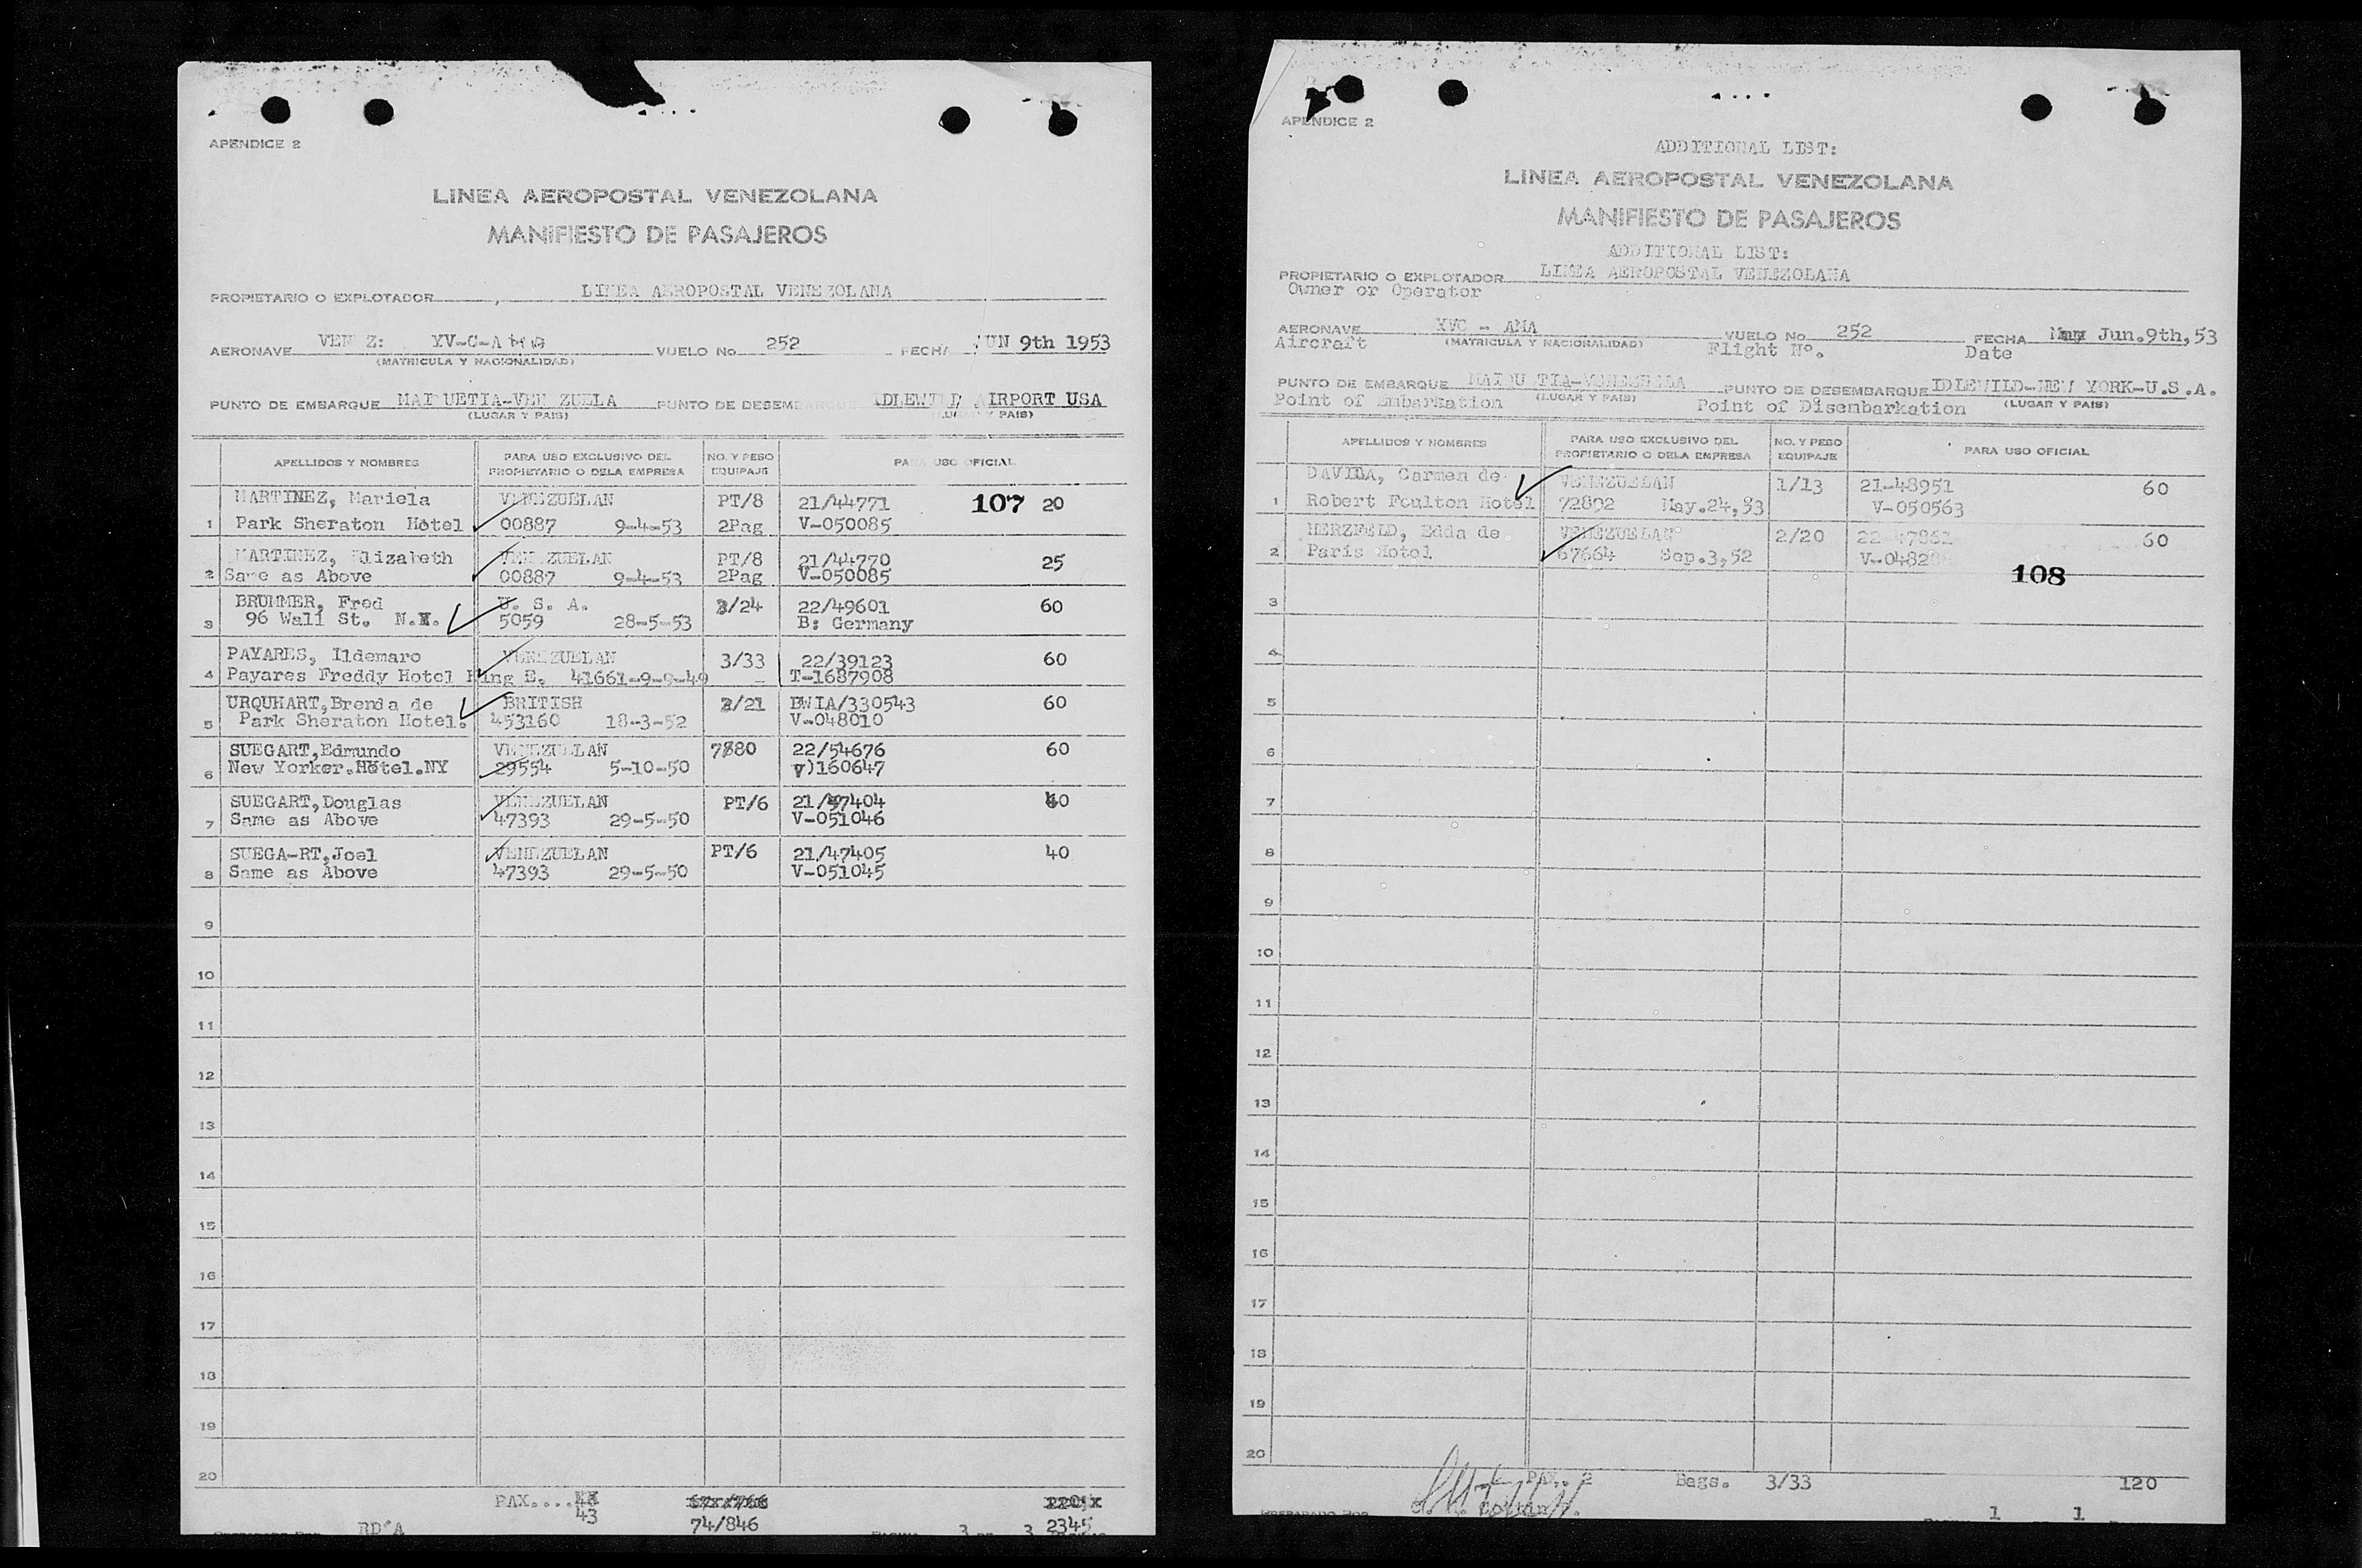 APENDICE 2
LINEA AEROPOSTAL VENEZOLANA
MANIFIESTO DE PASAJEROS
PROPIETARIO O EXPLOTADOR LINEA AEROPOSTAL VENEZOLANA
AERONAVE VENEZ: YV-C-A VUELO No 252 FECHA JUN 9th 1953
(MATRICULA Y NACIONALIDAD)
PUNTO DE EMBARQUE MAIQUETIA-VENEZUELA PUNTO DE DESEMBARQUE IDLEWILD AIRPORT USA
(LUGAR Y PAIS) (LUGAR Y PAIS)
APELLIDOS Y NOMBRES PARA USO EXCLUSIVO DEL PROPIETARIO O DE LA EMPRESA NO. Y PESO EQUIPAJE PARA USO OFICIAL
MARTINEZ, Mariela VENEZUELAN PT/8 21/44771 107 20
1 Park Sheraton Hotel 00887 9-4-53 2Pag V-050085
MARTINEZ, Elizabeth VENEZUELAN PT/8 21/44770 25
2 Same as Above 00887 9-4-53 2Pag V-050085
BRUMMER, Fred U. S. A. 3/24 22/49601 60
3 96 Wall St. N.Y. 5059 28-5-53 B: Germany
PAYARES, Ildemaro VENEZUELAN 3/33 22/39123 60
4 Payares Freddy Hotel King E. 41661-9-9-49 - T-1687908
URQUHART,Brenda de BRITISH 2/21 BWIA/330543 60
5 Park Sheraton Hotel. 453160 18-3-52 V-048010
SUEGART,Edmundo VENEZUELAN 7/80 22/54676 60
6 New Yorker.Hotel.NY 29554 5-10-50 V)160647
SUEGART,Douglas VENEZUELAN PT/6 21/47404 40
7 Same as Above 47393 29-5-50 V-051046
SUEGA-RT,Joel VENEZUELAN PT/6 21/47405 40
8 Same as Above 47393 29-5-50 V-051045
9
10
11
12
13
14
15
16
17
18
19
20
PAX.... 43 74/846 2345
RD°A 3 DE 3
APENDICE 2
ADDITIONAL LIST:
LINEA AEROPOSTAL VENEZOLANA
MANIFIESTO DE PASAJEROS
ADDITIONAL LIST:
PROPIETARIO O EXPLOTADOR LINEA AEROPOSTAL VENEZOLANA
Owner or Operator
AERONAVE YVC - AMA VUELO No 252 FECHA Jun.9th,53
Aircraft (MATRICULA Y NACIONALIDAD) Flight Nº. Date
PUNTO DE EMBARQUE MAIQUETIA-VENEZUELA PUNTO DE DESEMBARQUE IDLEWILD-NEW YORK-U.S.A.
Point of Embarkation (LUGAR Y PAIS) Point of Disembarkation (LUGAR Y PAIS)
APELLIDOS Y NOMBRES PARA USO EXCLUSIVO DEL PROPIETARIO O DE LA EMPRESA NO. Y PESO EQUIPAJE PARA USO OFICIAL
DAVILA, Carmen de VENEZUELAN 1/13 21-48951 60
1 Robert Foulton Hotel 72892 May.24,53 V-050563
HERZFELD, Edda de VENEZUELAN 2/20 22-47861 60
2 Paris Hotel 67664 Sep.3,52 V-0482
108
3
4
5
6
7
8
9
10
11
12
13
14
15
16
17
18
19
20
PAX.. 2 Bags. 3/33 120
PREPARADO POR 1 1